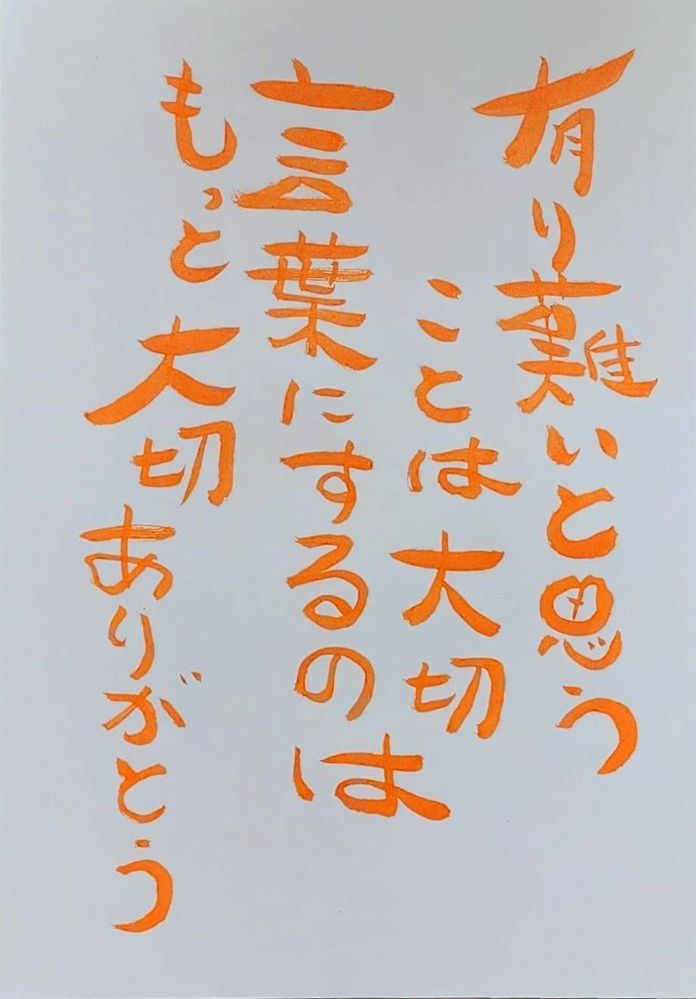 有り難いと思う
ことは大切
言葉にするのは
もっと大切
ありがとう